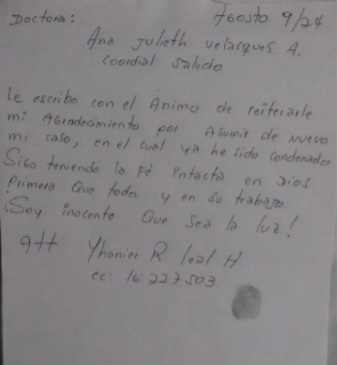 Doctora: Agosto 9/24
Ana Julieth velasques A.
coordial saludo
le escribo con el Animo de reiterarle
mi Agradecimiento por Asumir de Nuevo
mi caso, en el cual ya he sido condenado
Sigo teniendo la Fé intacta en Dios
Primero Que todo y en su trabajo
¡Soy inocente Que sea la luz!
Att: Yhonier R leal H.
cc: 16 227 503